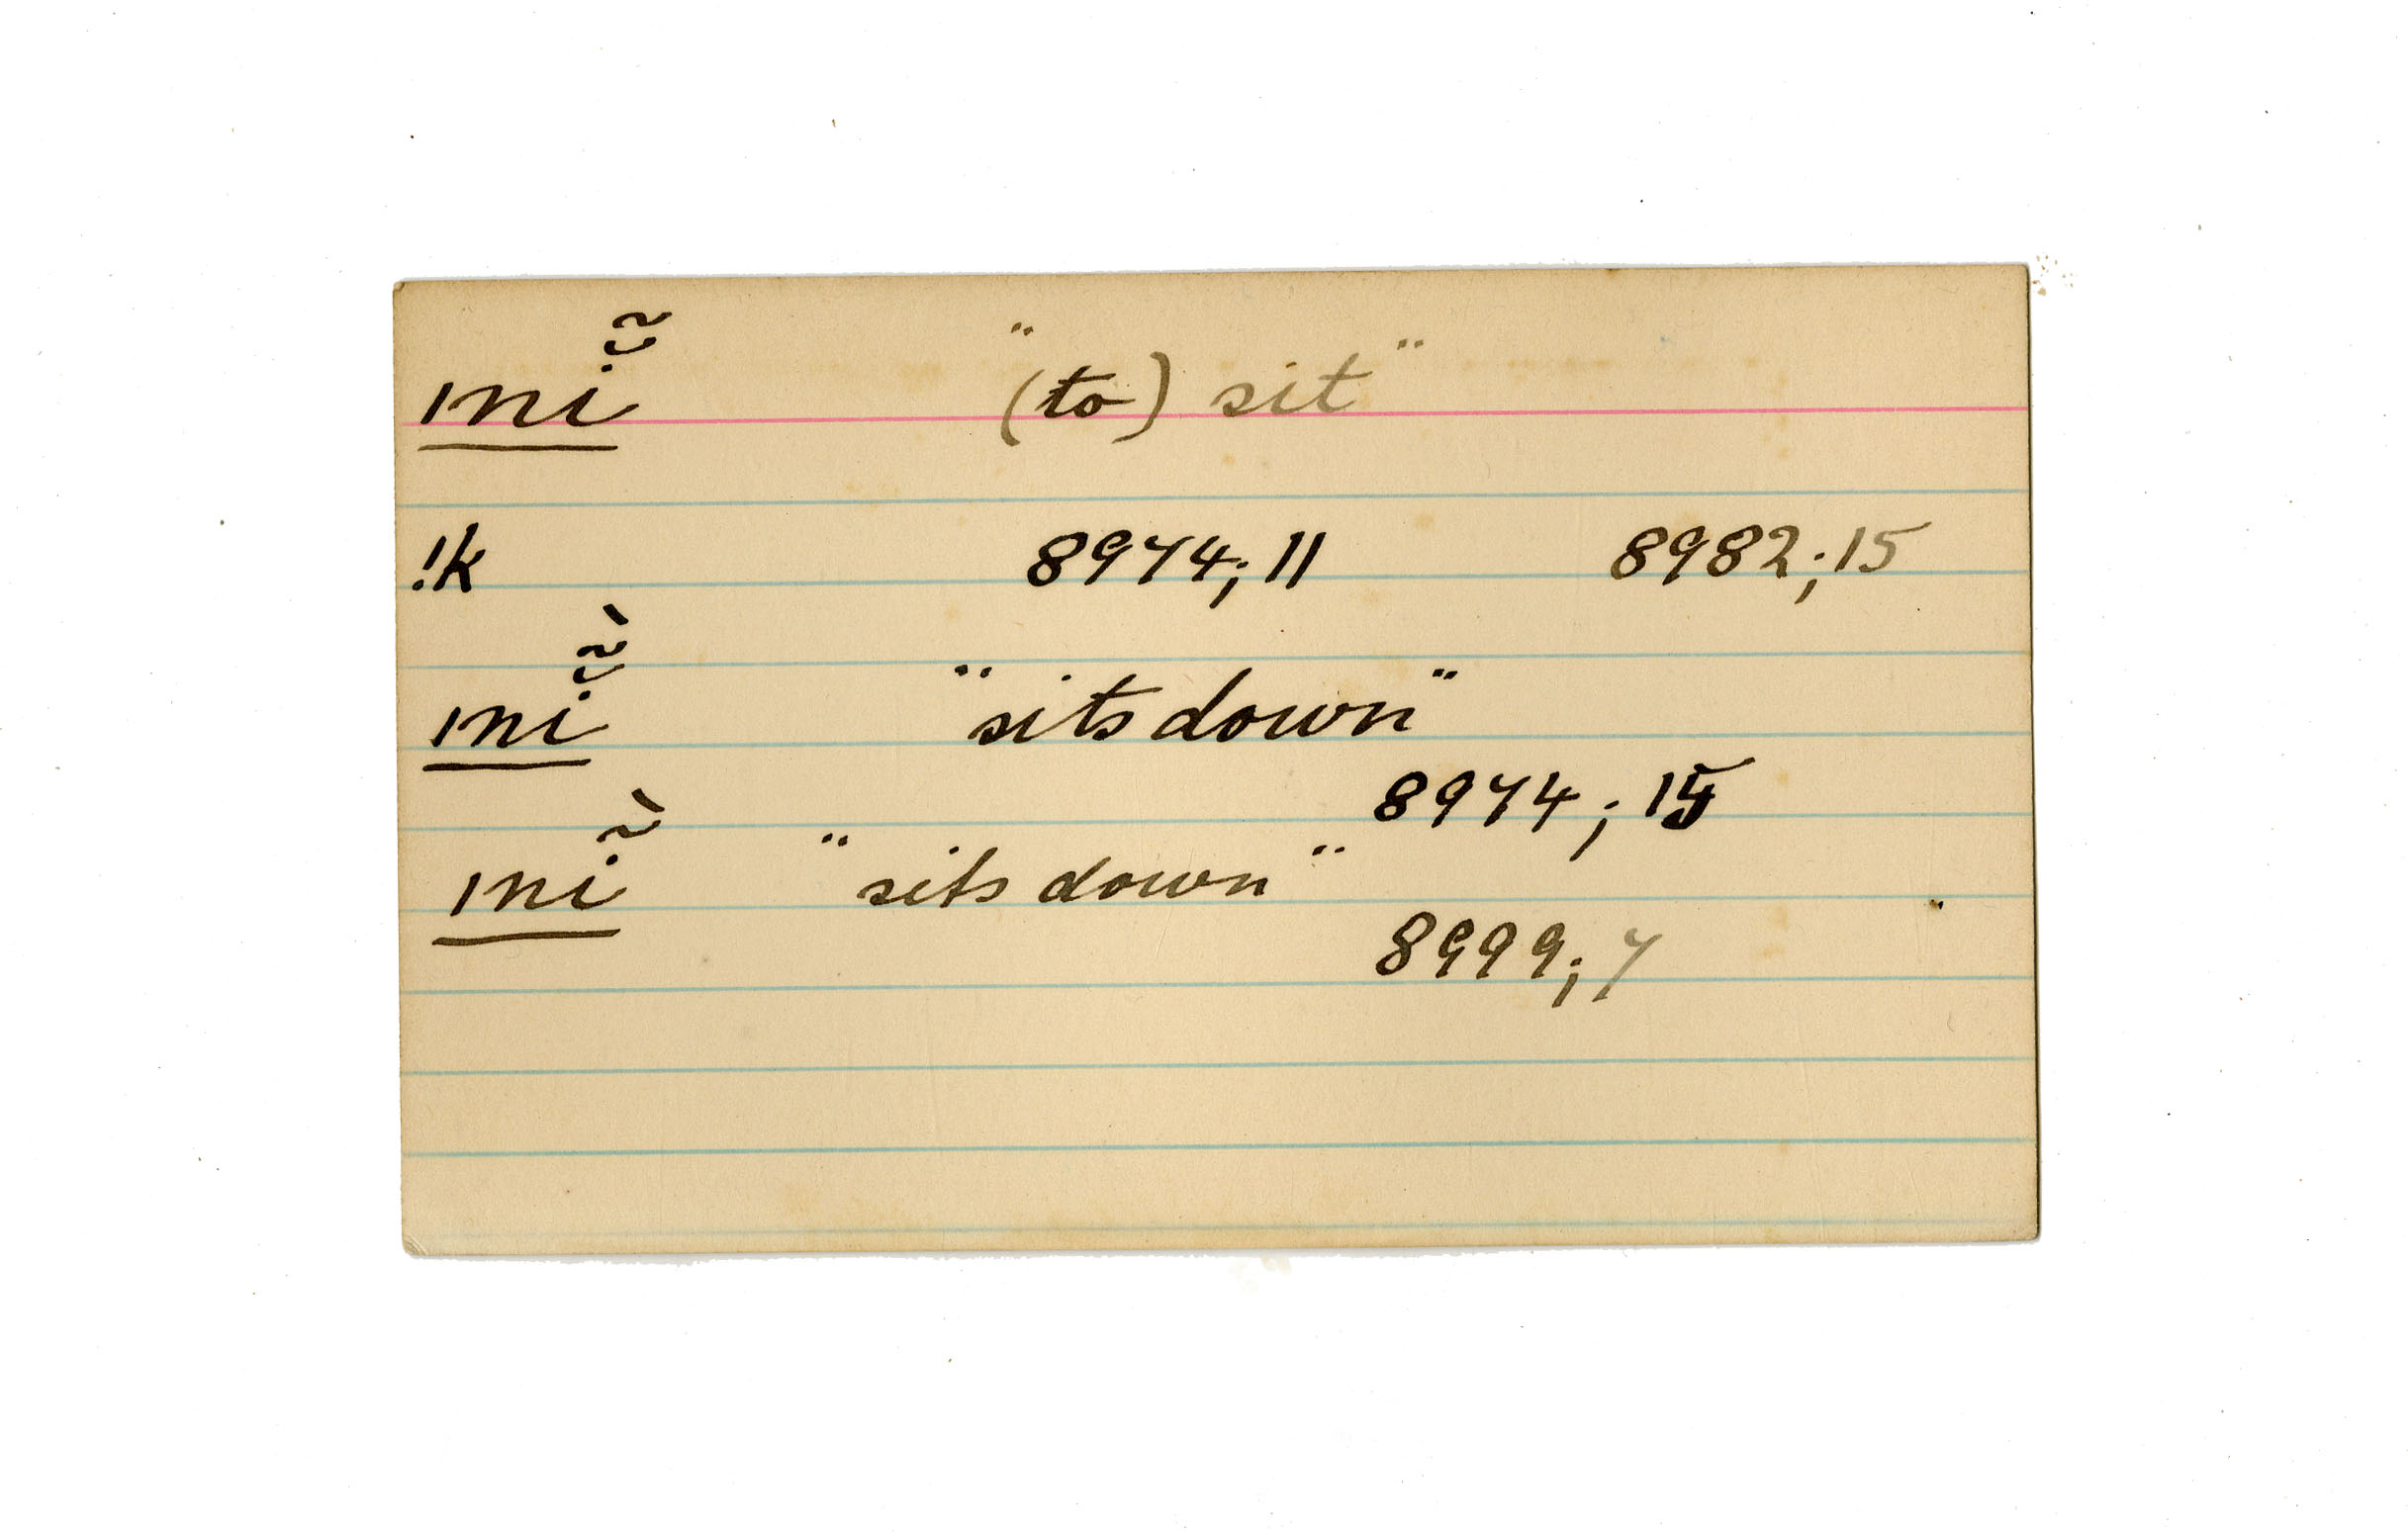 |nĭ̃ "(to) sit"
!k 8974; 11 8982; 15
|nĭ̃̀ "sits down"
8974; 15
|nĩ̀ "sits down"
8999; 7